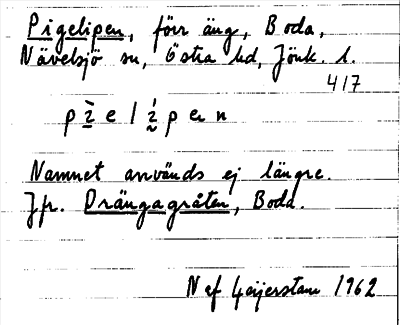 Pigelipen, förr äng, Boda,
Nävelsjö sn, Östra hd, Jönk. l.
417
Namnet används ej längre.
Jfr. Drängagråten, Boda.
N af Geijerstam 1962